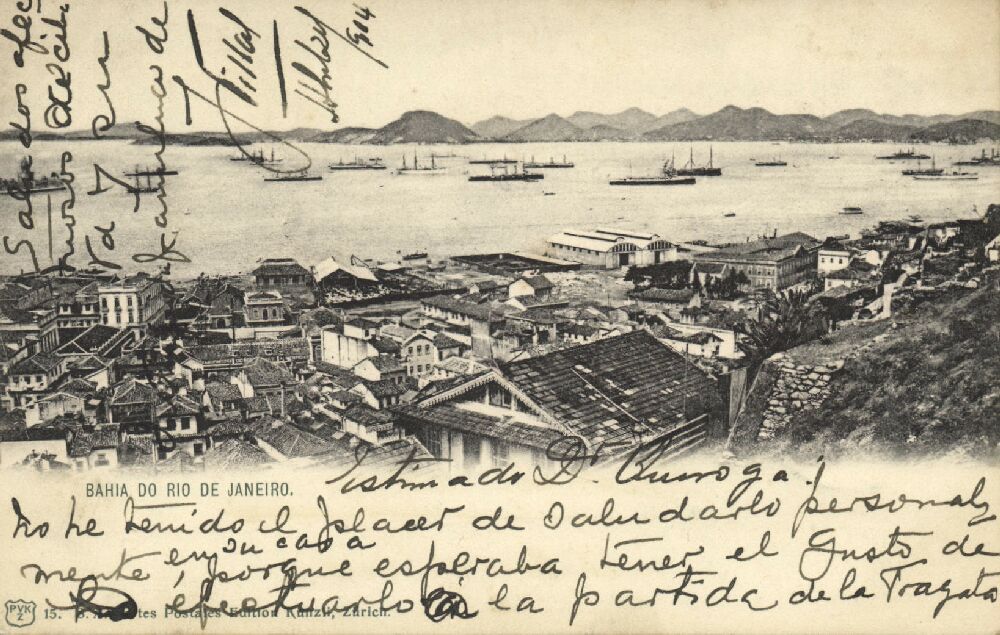 BAHIA DO RIO DE JANEIRO.
Estimado Dr. Quiroga:
no he tenido el placer de saludarlo personal
mente en su casa
porque esperaba tener el gusto de
efectuarlo a la partida de la Fragata
Saludos afec
Vd y en
familia de
904
PVK
Z
15. S. A. Postales Edition Künzli, Zürich.